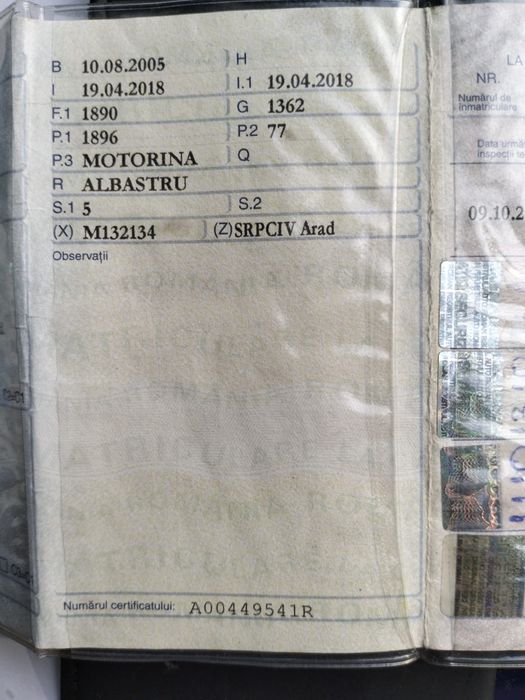 B 10.08.2005 H
I 19.04.2018 I.1 19.04.2018
F.1 1890 G 1362
P.1 1896 P.2 77
P.3 MOTORINA Q
R ALBASTRU
S.1 5 S.2
(X) M132134 (Z) SRPCIV Arad
Observații
Numărul certificatului: A00449541R
LA
NR.
Numărul de
înmatriculare
Data urmă
inspecții te
09.10.2